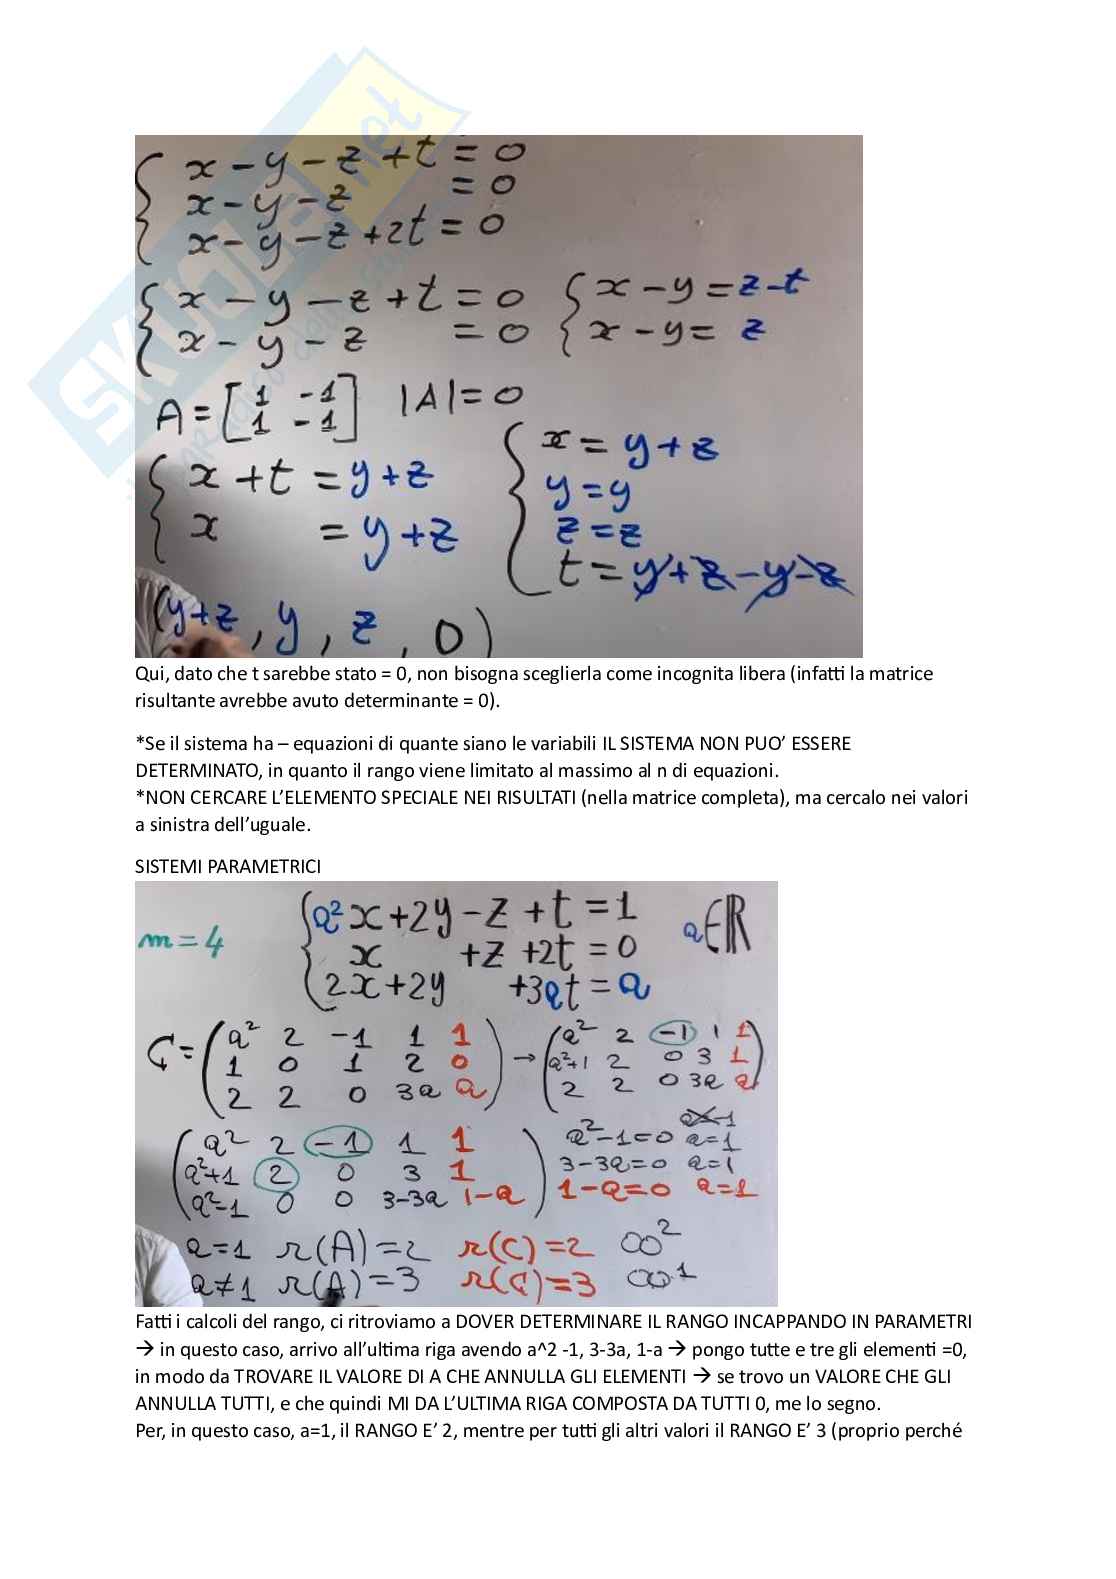 SKUOLA.net
x - y - z + t = 0
x - y - z = 0
x - y - z + 2t = 0
x - y - z + t = 0
x - y - z = 0
x - y = z - t
x - y = z
A = [1 -1
1 -1] |A| = 0
x + t = y + z
x = y + z
x = y + z
y = y
z = z
t = y + z - y - z
(y+z, y, z, 0)
Qui, dato che t sarebbe stato = 0, non bisogna sceglierla come incognita libera (infatti la matrice
risultante avrebbe avuto determinante = 0).
*Se il sistema ha – equazioni di quante siano le variabili IL SISTEMA NON PUO’ ESSERE
DETERMINATO, in quanto il rango viene limitato al massimo al n di equazioni.
*NON CERCARE L’ELEMENTO SPECIALE NEI RISULTATI (nella matrice completa), ma cercalo nei valori
a sinistra dell’uguale.
SISTEMI PARAMETRICI
m = 4
a²x + 2y - z + t = 1
x + z + 2t = 0
2x + 2y + 3at = a
a ∈ ℝ
C = (a² 2 -1 1 1
1 0 1 2 0
2 2 0 3a a)
→ (a² 2 -1 1 1
a²+1 2 0 3 1
2 2 0 3a a)
(a² 2 -1 1 1
a²+1 2 0 3 1
a²-1 0 0 3-3a 1-a)
a=-1
a²-1=0 a=1
3-3a=0 a=1
1-a=0 a=1
a=1 r(A)=2 r(C)=2 ∞²
a≠1 r(A)=3 r(C)=3 ∞¹
Fatti i calcoli del rango, ci ritroviamo a DOVER DETERMINARE IL RANGO INCAPPANDO IN PARAMETRI
→ in questo caso, arrivo all’ultima riga avendo a^2 -1, 3-3a, 1-a → pongo tutte e tre gli elementi =0,
in modo da TROVARE IL VALORE DI A CHE ANNULLA GLI ELEMENTI → se trovo un VALORE CHE GLI
ANNULLA TUTTI, e che quindi MI DA L’ULTIMA RIGA COMPOSTA DA TUTTI 0, me lo segno.
Per, in questo caso, a=1, il RANGO E’ 2, mentre per tutti gli altri valori il RANGO E’ 3 (proprio perché